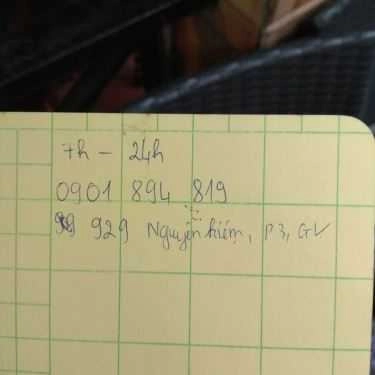 7h - 24h
0901 894 819
929 Nguyễn kiệm, P3, GV